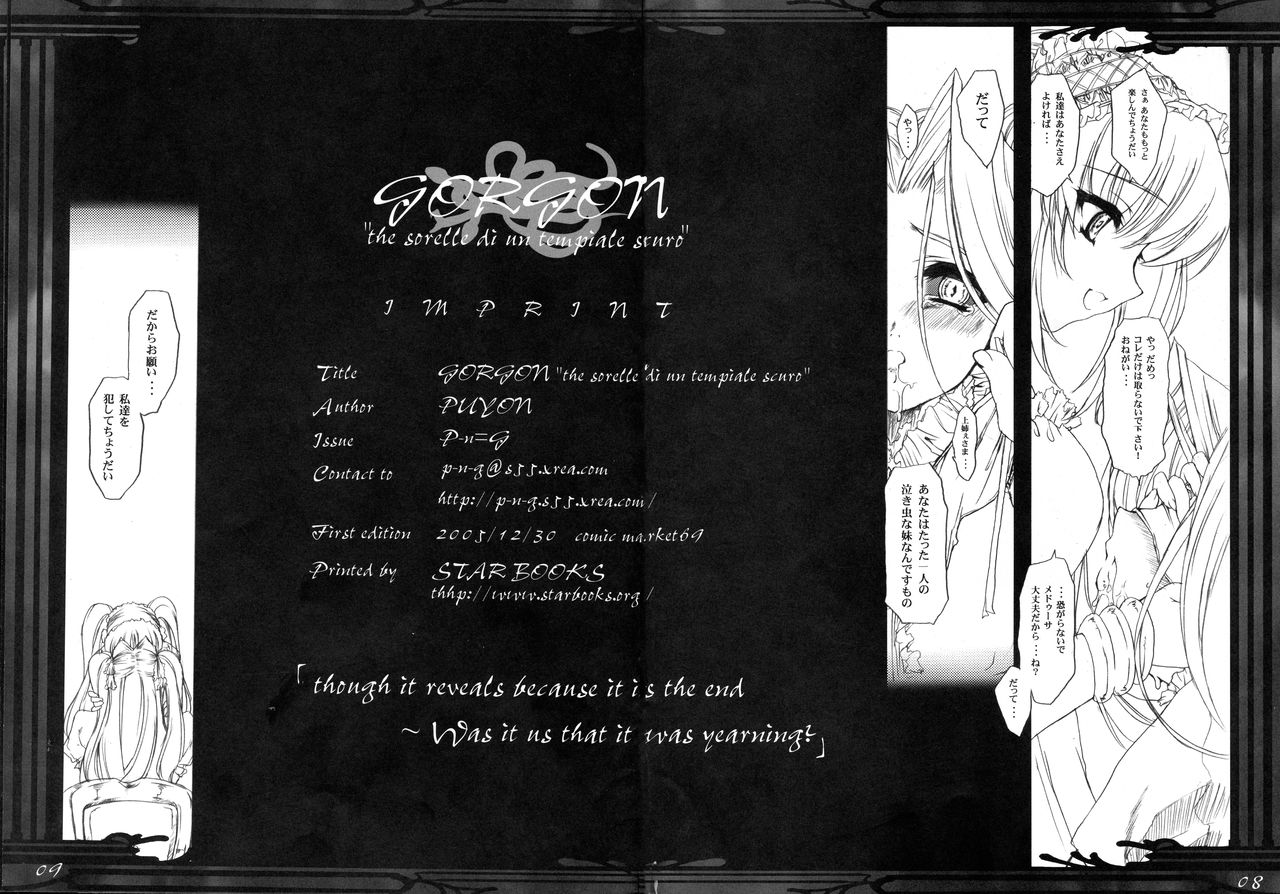 さぁ あなたももっと
楽しんでちょうだい
私達はあなたさえ
よければ・・・
やっ だめっ
コレだけは取らないで下さい！
おねがい・・・
・・・恐がらないで
メドゥーサ
大丈夫だから・・・ね？
だって・・・
だって
やっ・・・
上姉ぇさま・・・
あなたはたった一人の
泣き虫な妹なんですもの
GORGON
"the sorelle di un tempiale scuro"
IMPRINT
Title GORGON "the sorelle di un tempiale scuro"
Author PUYON
Issue P-n=G
Contact to p-n-g@s55.xrea.com
http://p-n-g.s55.xrea.com/
First edition 2005/12/30 comic market69
Printed by STAR BOOKS
thhp://www.starbooks.org/
「though it reveals because it is the end
~ Was it us that it was yearning?」
だからお願い・・・
私達を
犯してちょうだい
09
08